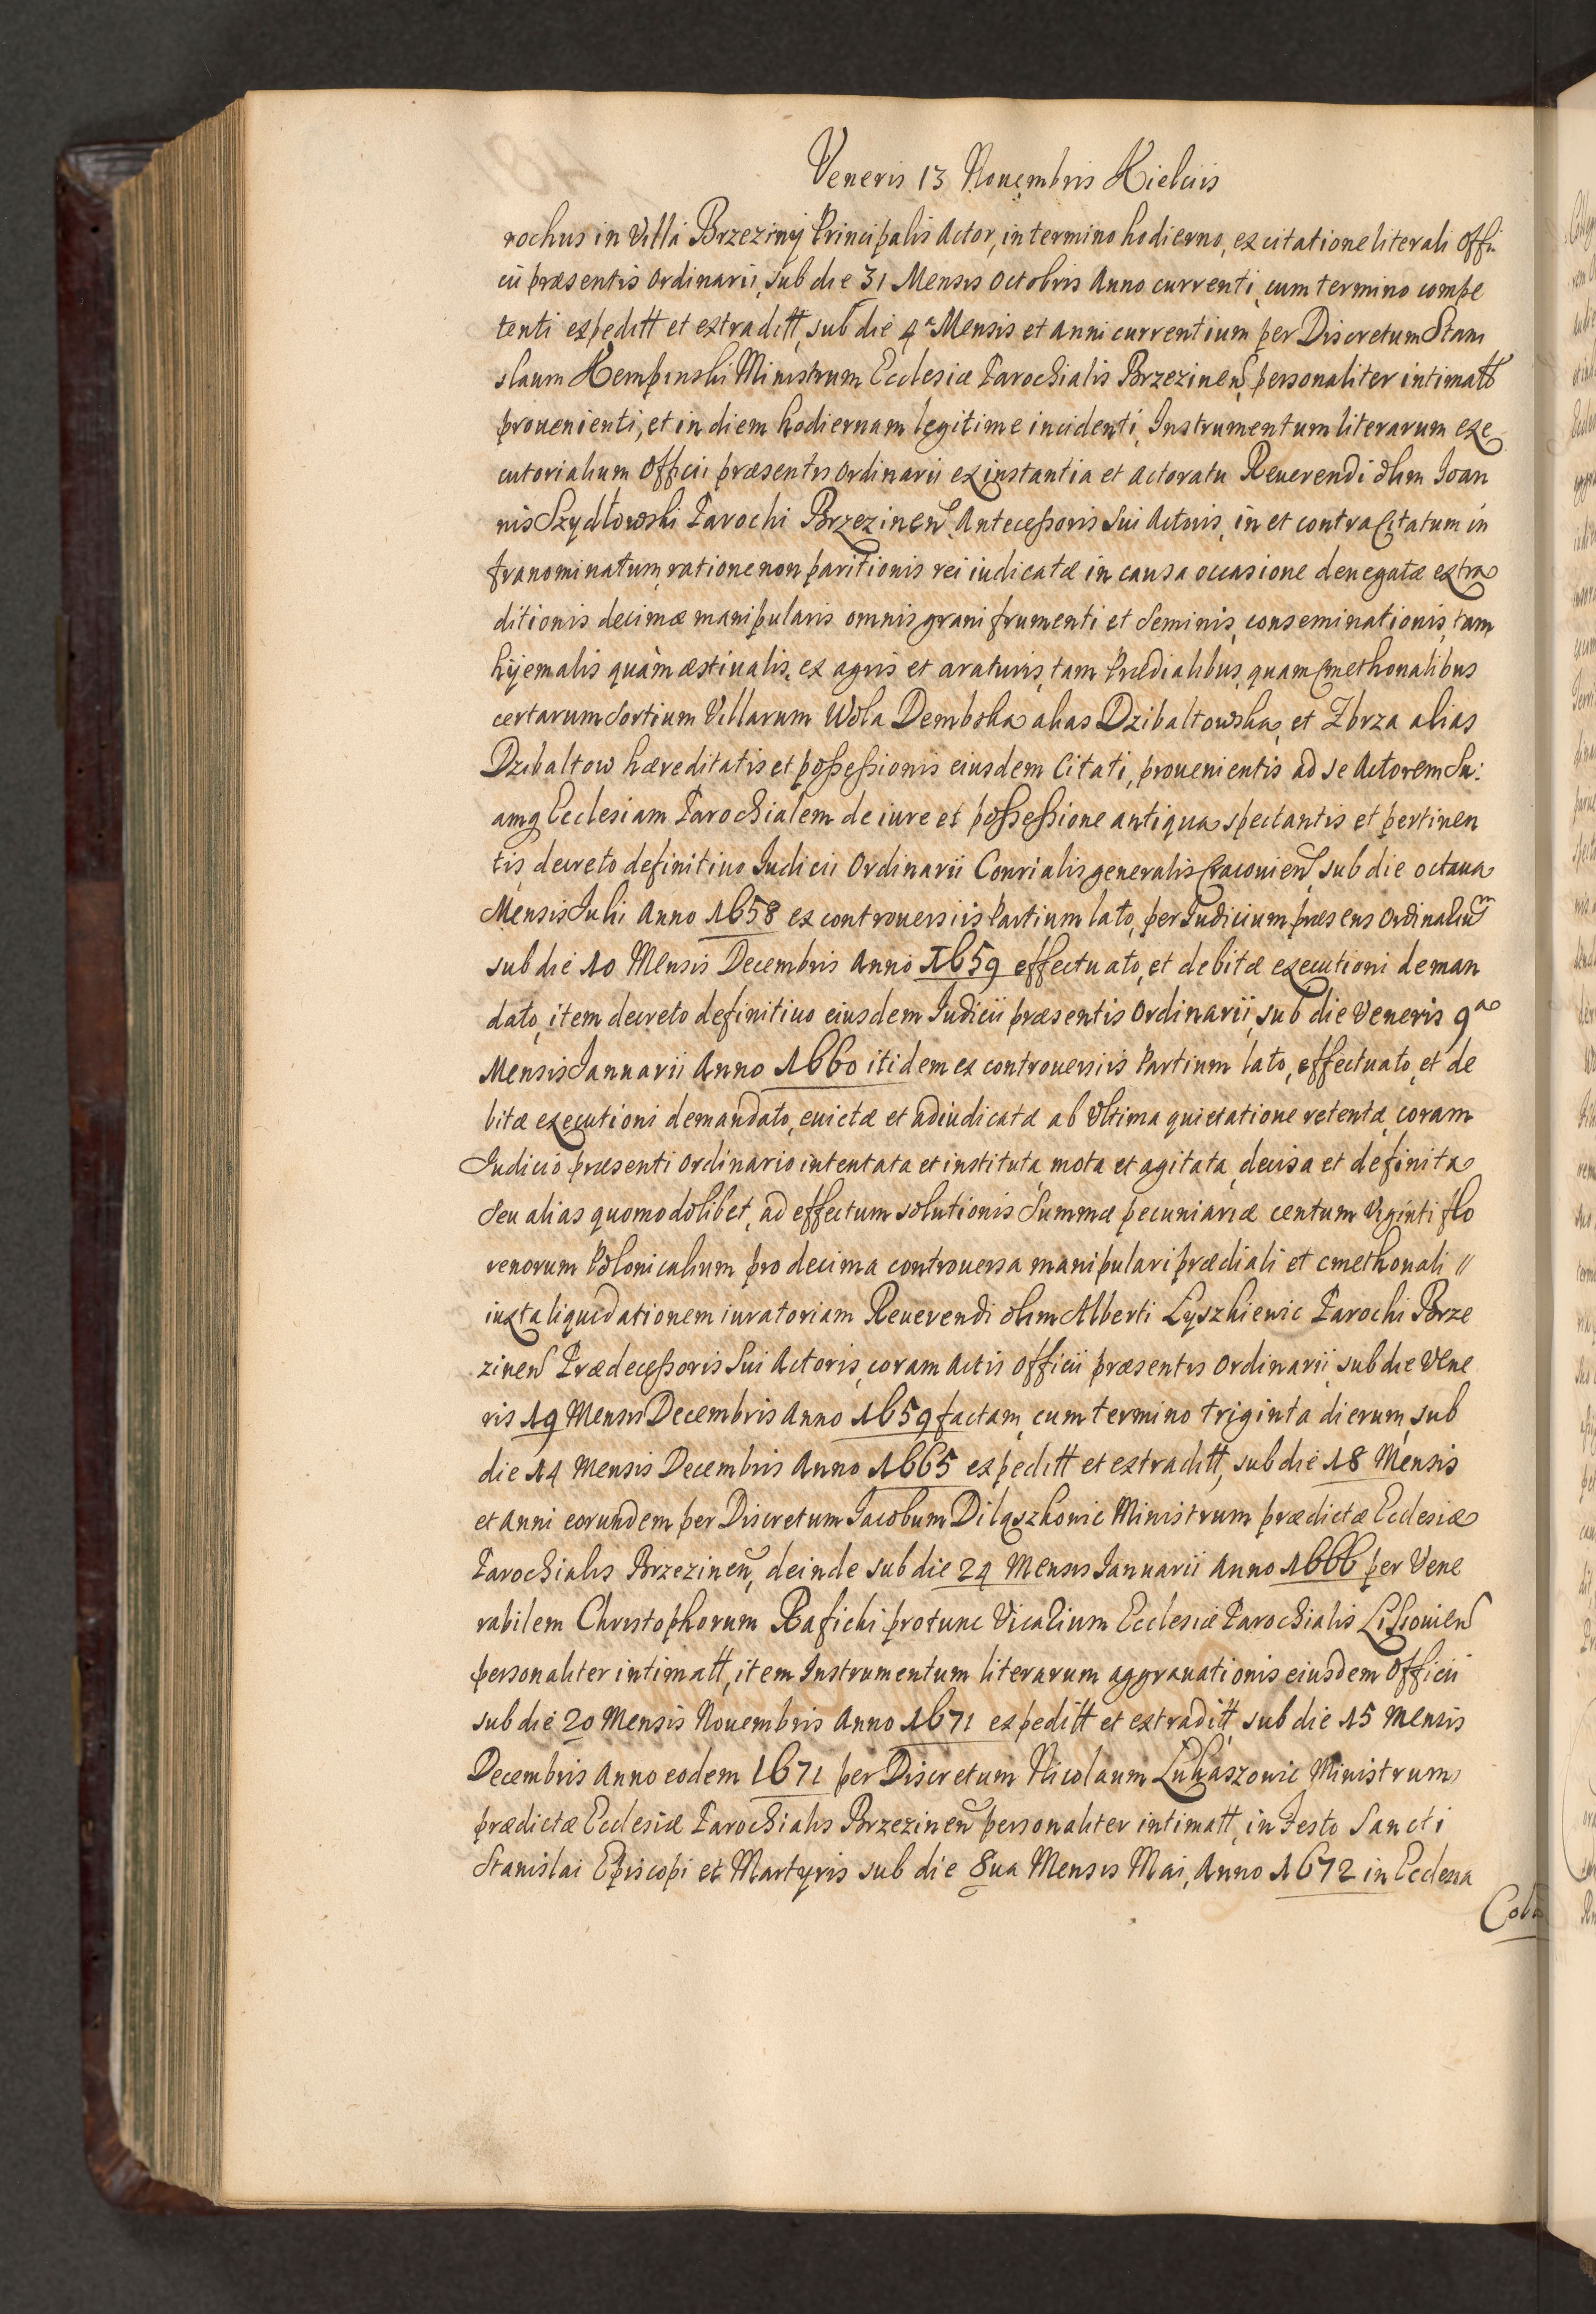 Veneris 13 Nouembris Kielciis
rochus in Villa Brzeziny Principalis Actor, in termino hodierno, ex citatione literali Offi
cii præsentis Ordinarii, sub die 31 Mensis Octobris Anno currenti, cum termino compe
tenti expeditt et extraditt, sub die 4ª Mensis et anni currentium per Discretum Stani
slaum Kempinski Ministrum Ecclesiæ Parochialis Brzezinen personaliter intimatt
prouenienti, et in diem hodiernam legitime incidenti, Instrumentum literarum exe
cutorialium Officii præsentis Ordinarii ex instantia et actoratu Reuerendi olim Ioan
nis Szydłowski Parochi Brzezinen Antecessoris Sui Actoris, in et contra Citatum in
franominatum, ratione non paritionis rei iudicatæ in causa occasione denegatæ extra
ditionis decimæ manipularis omnis grani frumenti et Seminis, conseminationis, tam
hyemalis quàm æstiualis, ex agris et araturis, tam Prædialibus, quam Cmethonalibus
certarum Sortium Villarum Wola Dembska alias Dzibaltowska, et Zbrza alias
Dzibaltow hæreditatis et possessionis eiusdem Citati, prouenientis ad se Actorem Su:
amq Ecclesiam Parochialem de iure et possessione antiqua spectantis et pertinen
tis, decreto definitiuo Iudicii Ordinarii Conrialis generalis Cracouien, sub die octaua
Mensis Iulii Anno 1658 ex controuersiis Partium lato, per Iudicium præsens Ordinarium
sub die 10 Mensis Decembris Anno 1659 effectuato, et debitæ executioni deman
dato, item decreto definitiuo eiusdem Iudicii præsentis Ordinarii, sub die Veneris 9ª
Mensis Ianuarii Anno 1660 itidem ex controuersiis Partium lato, effectuato, et de
bitæ executioni demandato, euictæ et adiudicatæ ab Ultima quietatione retentæ, coram
Iudicio præsenti Ordinario intentata et instituta, mota et agitata, decisa et definita
Seu alias quomodolibet, ad effectum solutionis Summæ pecuniariæ centum Viginti flo
renorum Polonicalium pro decima controuersa manipulari prædiali et cmethonali //
iuxta liquidationem iuratoriam Reuerendi olim Alberti Lyszkiewic Parochi Brze
zinen Prædecessoris Sui Actoris, coram Actis Officii præsentis Ordinarii, sub die Vene
ris 19 Mensis Decembris Anno 1659 factam, cum termino triginta dierum, sub
die 14 Mensis Decembris Anno 1665 expeditt et extraditt, sub die 18 Mensis
et anni eorundem per Discretum Iacobum Ministrum prædictæ Ecclesiæ
Parochialis Brzezinen, deinde sub die 24 Mensis Ianuarii Anno 1666 per Vene
rabilem Christophorum Raficki protunc Vicarium Ecclesiæ Parochialis Lissouien
personaliter intimatt, item Instrumentum literarum aggrauationis eiusdem Officii
sub die 20 Mensis Nouembris Anno 1671 expeditt et extraditt, sub die 15 Mensis
Decembris Anno eodem 1671 per Discretum Nicolaum Lukaszowic Ministrum
prædictæ Ecclesiæ Parochialis Brzezinen personaliter intimatt, in Festo Sancti
Stanislai Episcopi et Martyris sub die 8ua Mensis Mai, Anno 1672 in Ecclesia